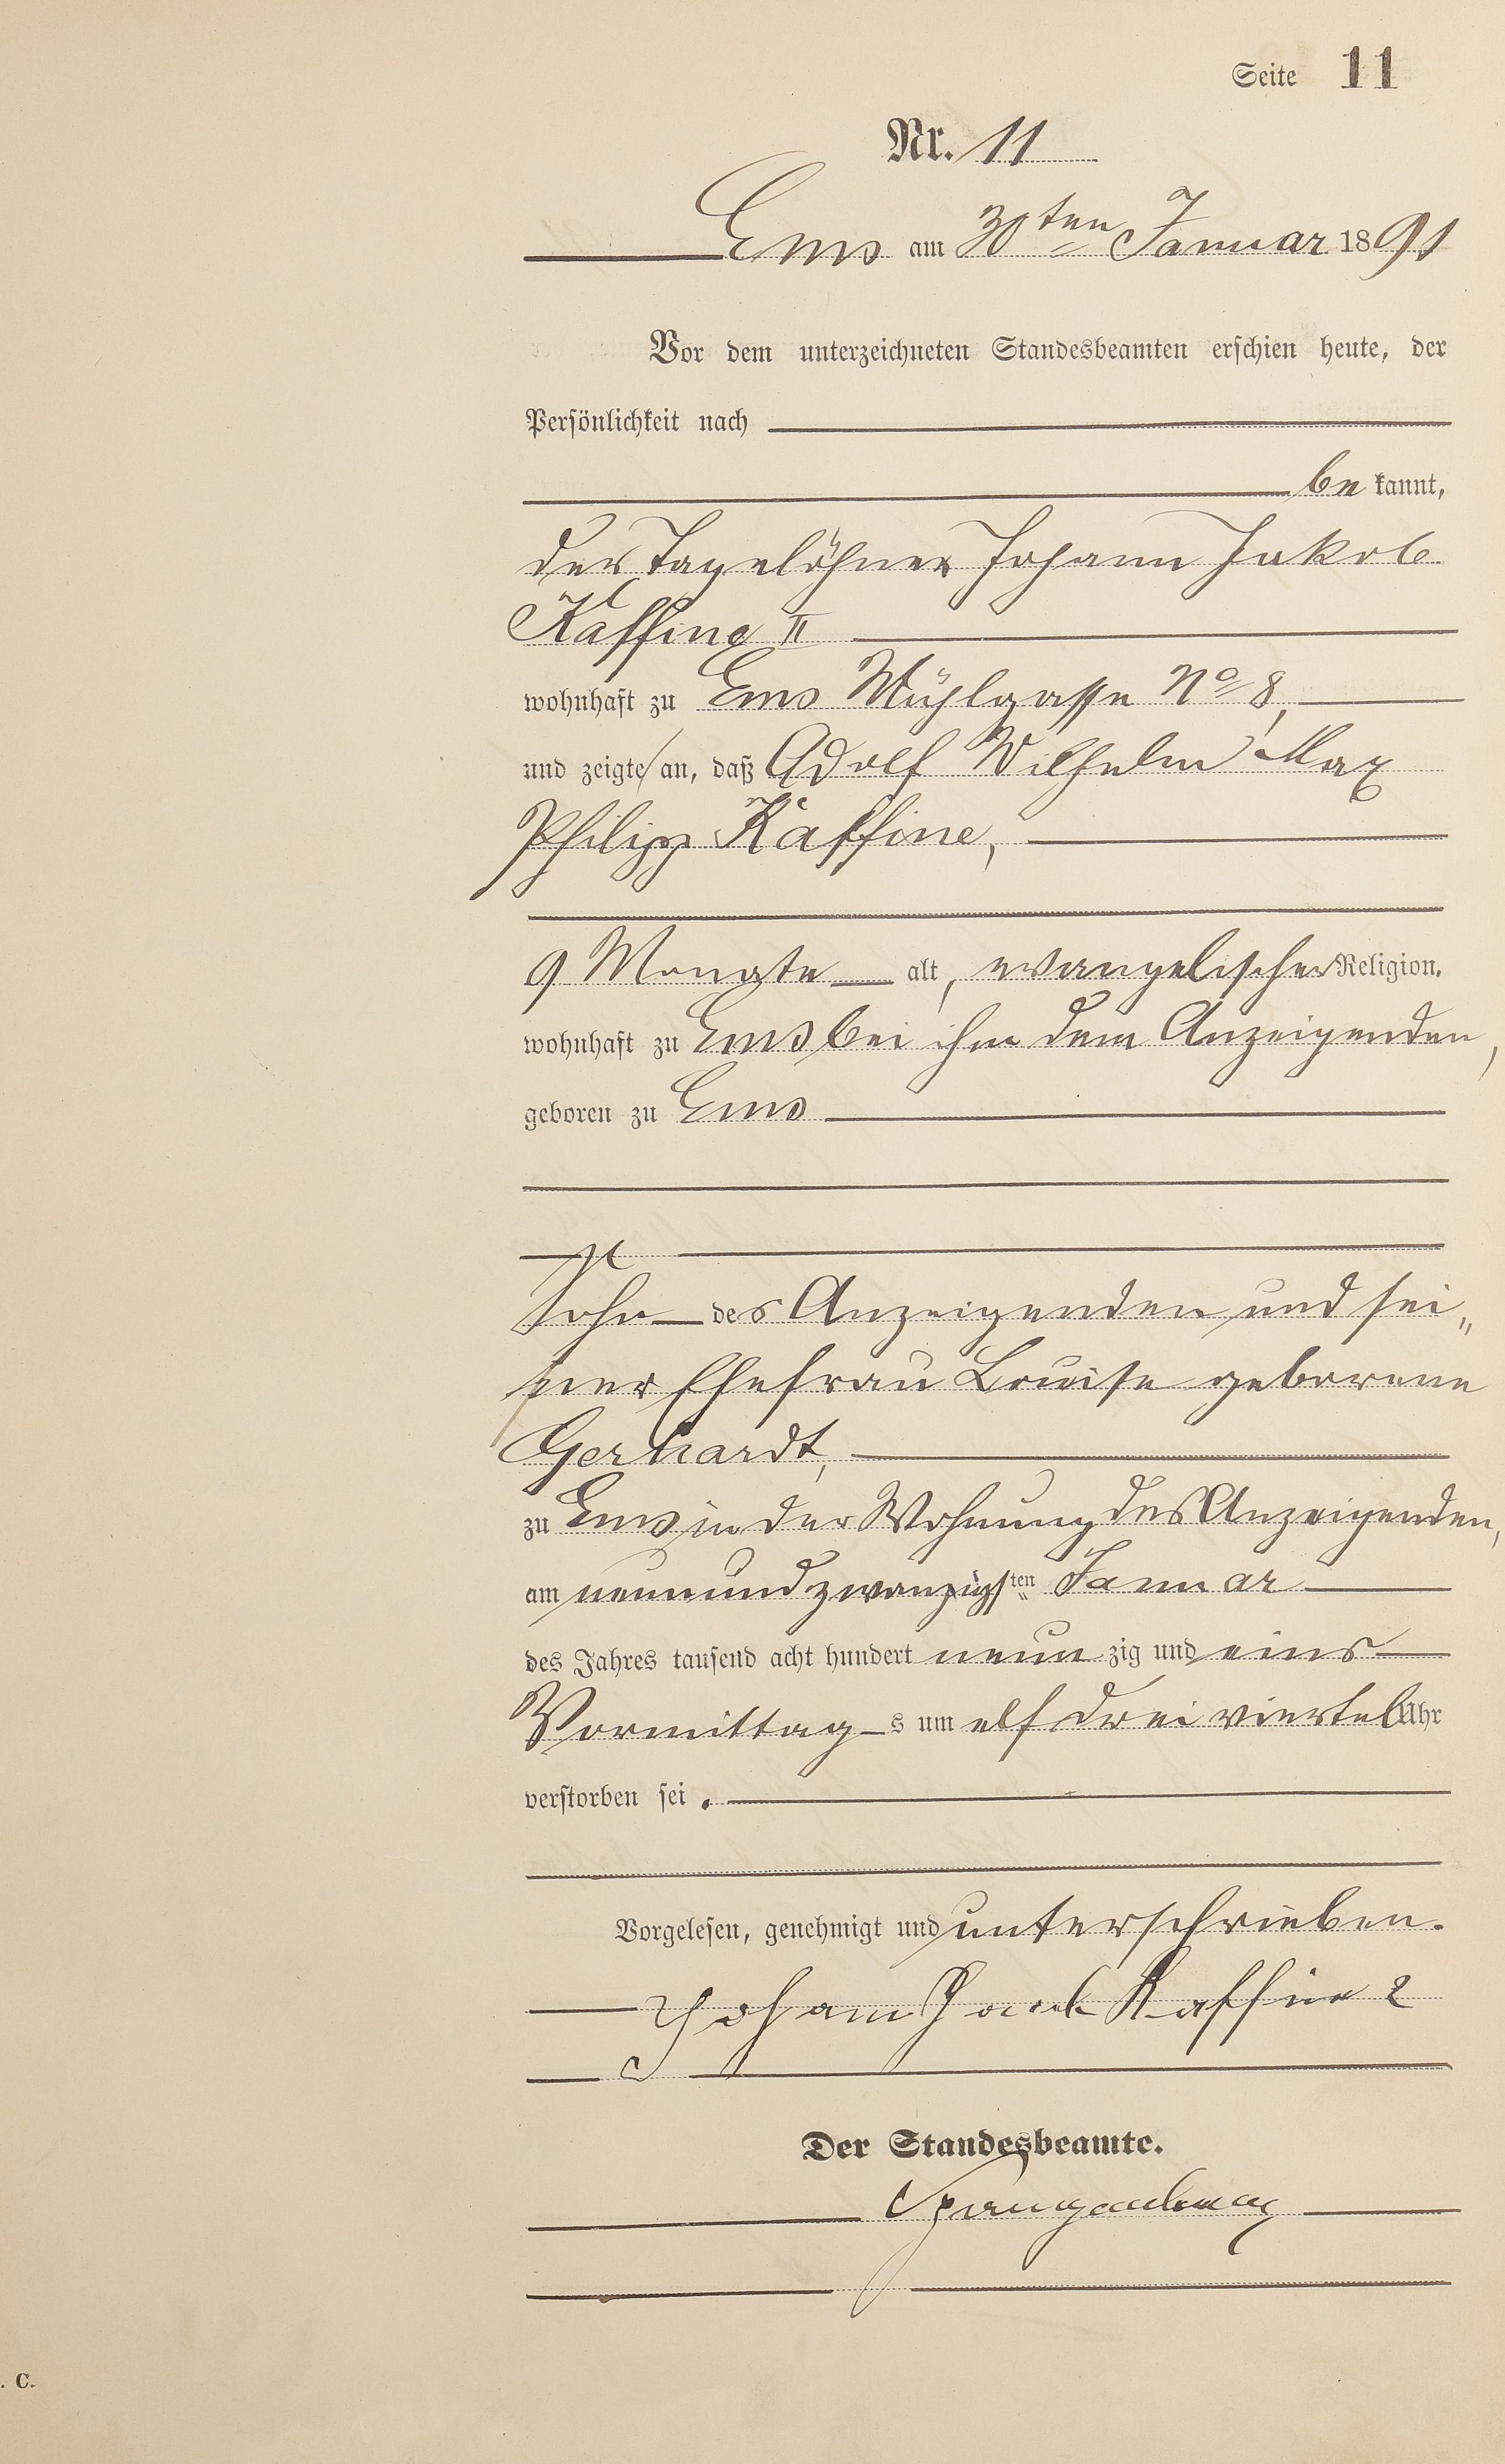 Seite 11
Nr. 11
Ems am 30ten Januar 1891
Vor dem unterzeichneten Standesbeamten erschien heute, der
Persönlichkeit nach
be kannt,
der Tagelöhner Johann Jakob
Kaffine II
wohnhaft zu Ems Mühlgasse No 8,
und zeigte an, daß Adolf Wilhelm Max
Philipp Kaffine,
9 Monate alt, evangelischer Religion,
wohnhaft zu Ems bei ihm dem Anzeigenden,
geboren zu Ems
Sohn des Anzeigenden und sei„
ner Ehefrau Louise geborene
Gerhardt,
zu Ems in der Wohnung des Anzeigenden,
am neunundzwanzigsten Januar
des Jahres tausend acht hundert neun zig und eins
Vormittag s um elf drei viertel Uhr
verstorben sei.
Vorgelesen, genehmigt und unterschrieben.
Johann Kaffine 2
Der Standesbeamte.
. C.